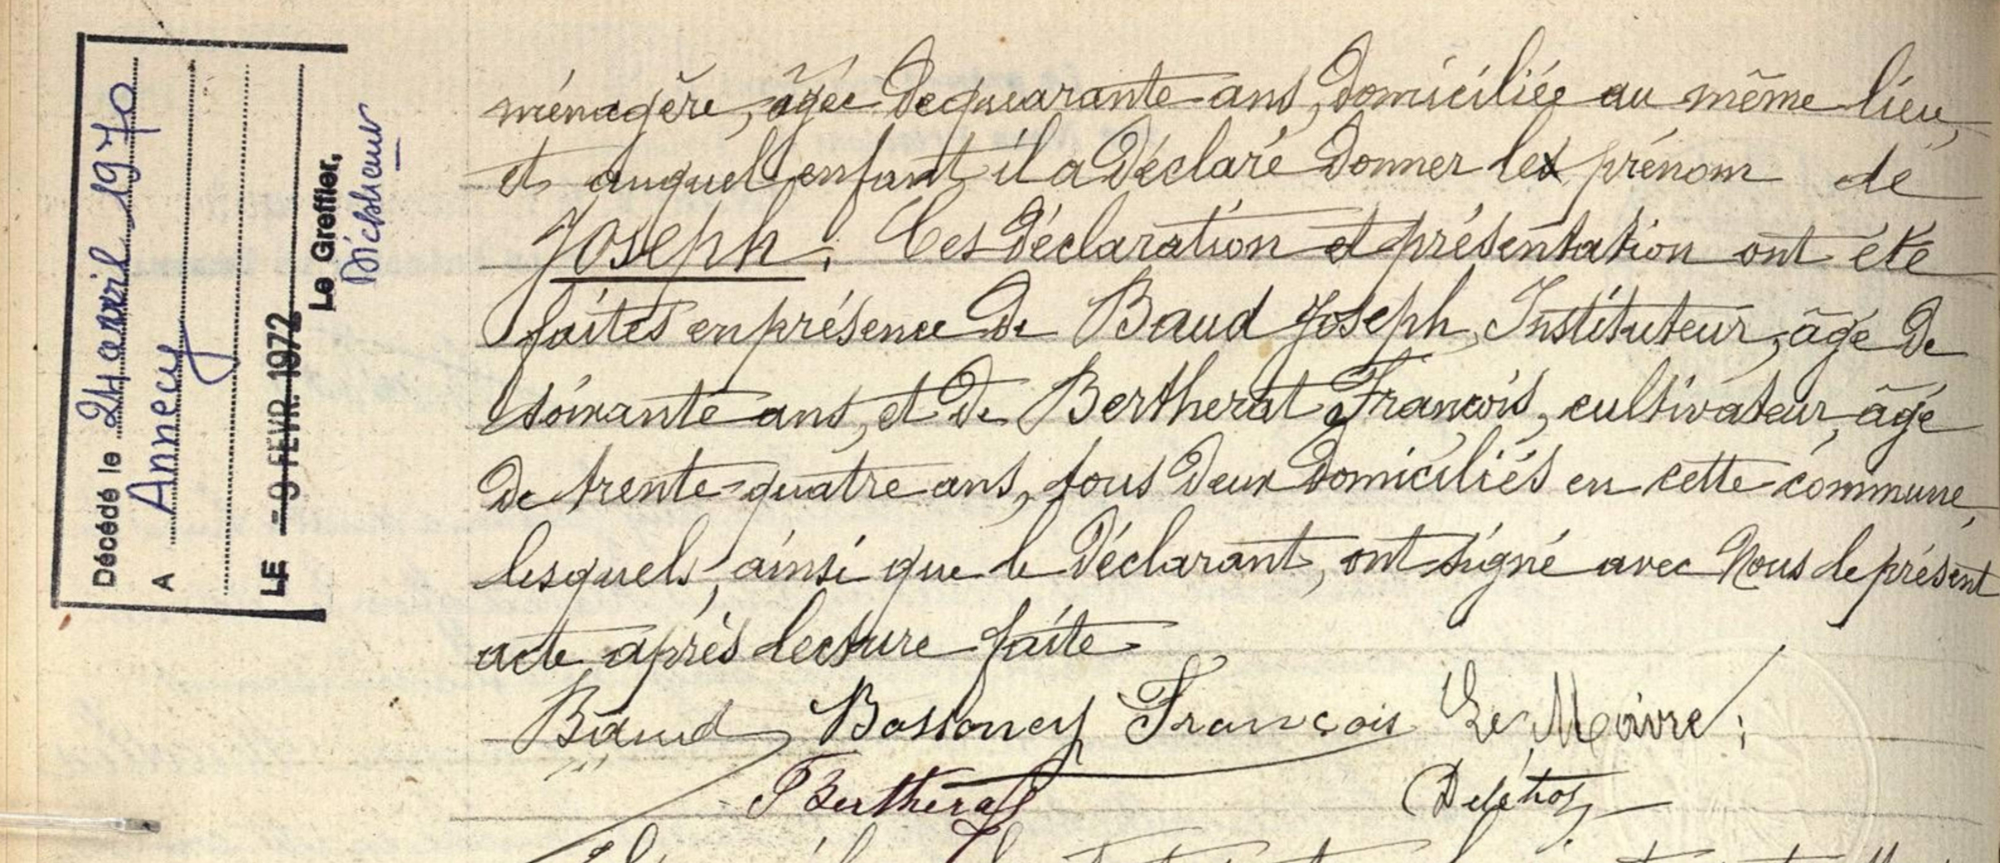 Décédé le 24 avril 1970
A Annecy
LE - 9 FEVR. 1972
Le Greffier,
ménagère, âgée de quarante ans, domiciliée au même lieu,
et auquel enfant il a déclaré donner le prénom de
Joseph. Ces déclaration et présentation ont été
faites en présence de Baud Joseph, Instituteur, âgé de
soixante ans, et de Bertherat François, cultivateur, âgé
de trente-quatre ans, tous deux domiciliés en cette commune,
lesquels, ainsi que le déclarant, ont signé avec Nous le présent
acte après lecture faite
Baud Bossoney François Le Maire:
F Bertherat